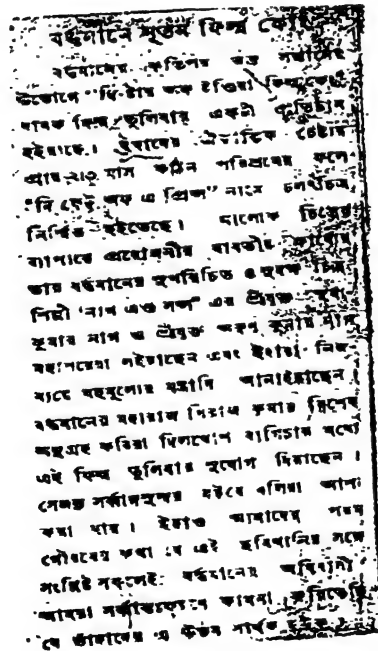 বর্দ্ধমানে নূতন ফিল্ম কোং
বর্দ্ধমানের কতিপয় ভদ্র সন্তানের
উদ্যোগে "দি ষ্টার অফ ইণ্ডিয়া ফিল্ম কোং"
নামক ফিল্ম তুলিবার একটী প্রতিষ্ঠান
হইয়াছে। ইহাদের ঐকান্তিক চেষ্টায়
প্রায় মাস কঠিন পরিশ্রমের ফলে
অফ এ প্রিন্স" নামে চলচ্চিত্র
নির্ম্মিত হইতেছে। আলোক চিত্রের
ব্যাপারে প্রয়োজনীয় যাবতীয় কার্য্যের
ভার বর্দ্ধমানের সুপরিচিত ও সুদক্ষ চিত্র
শিল্পী "নাগ এণ্ড সন্স" এর শ্রীযুক্ত
কুমার নাগ ও শ্রীযুক্ত কুমার নাগ
মহাশয়েরা লইয়াছেন এবং ইহারা নিজ
ব্যয়ে বহুমূল্যের যন্ত্রাদি আনাইয়াছেন।
বর্দ্ধমানের মহারাজ ধিরাজ কুমার বিশেষ
অনুগ্রহ করিয়া দিলখোস বাগিচার মধ্যে
এই ফিল্ম তুলিবার সুযোগ দিয়াছেন।
সেজন্য সর্ব্বাঙ্গসুন্দর হইবে বলিয়া আশা
করা যায়। ইহাও আমাদের পরম
গৌরবের কথা যে এই ছবিখানির সঙ্গে
সংশ্লিষ্ট সকলেই বর্দ্ধমানের অধিবাসী।
আমরা সর্ব্বান্তঃকরণে কামনা করিতেছি
যে তাঁহাদের এ উদ্যম সার্থক হউক।